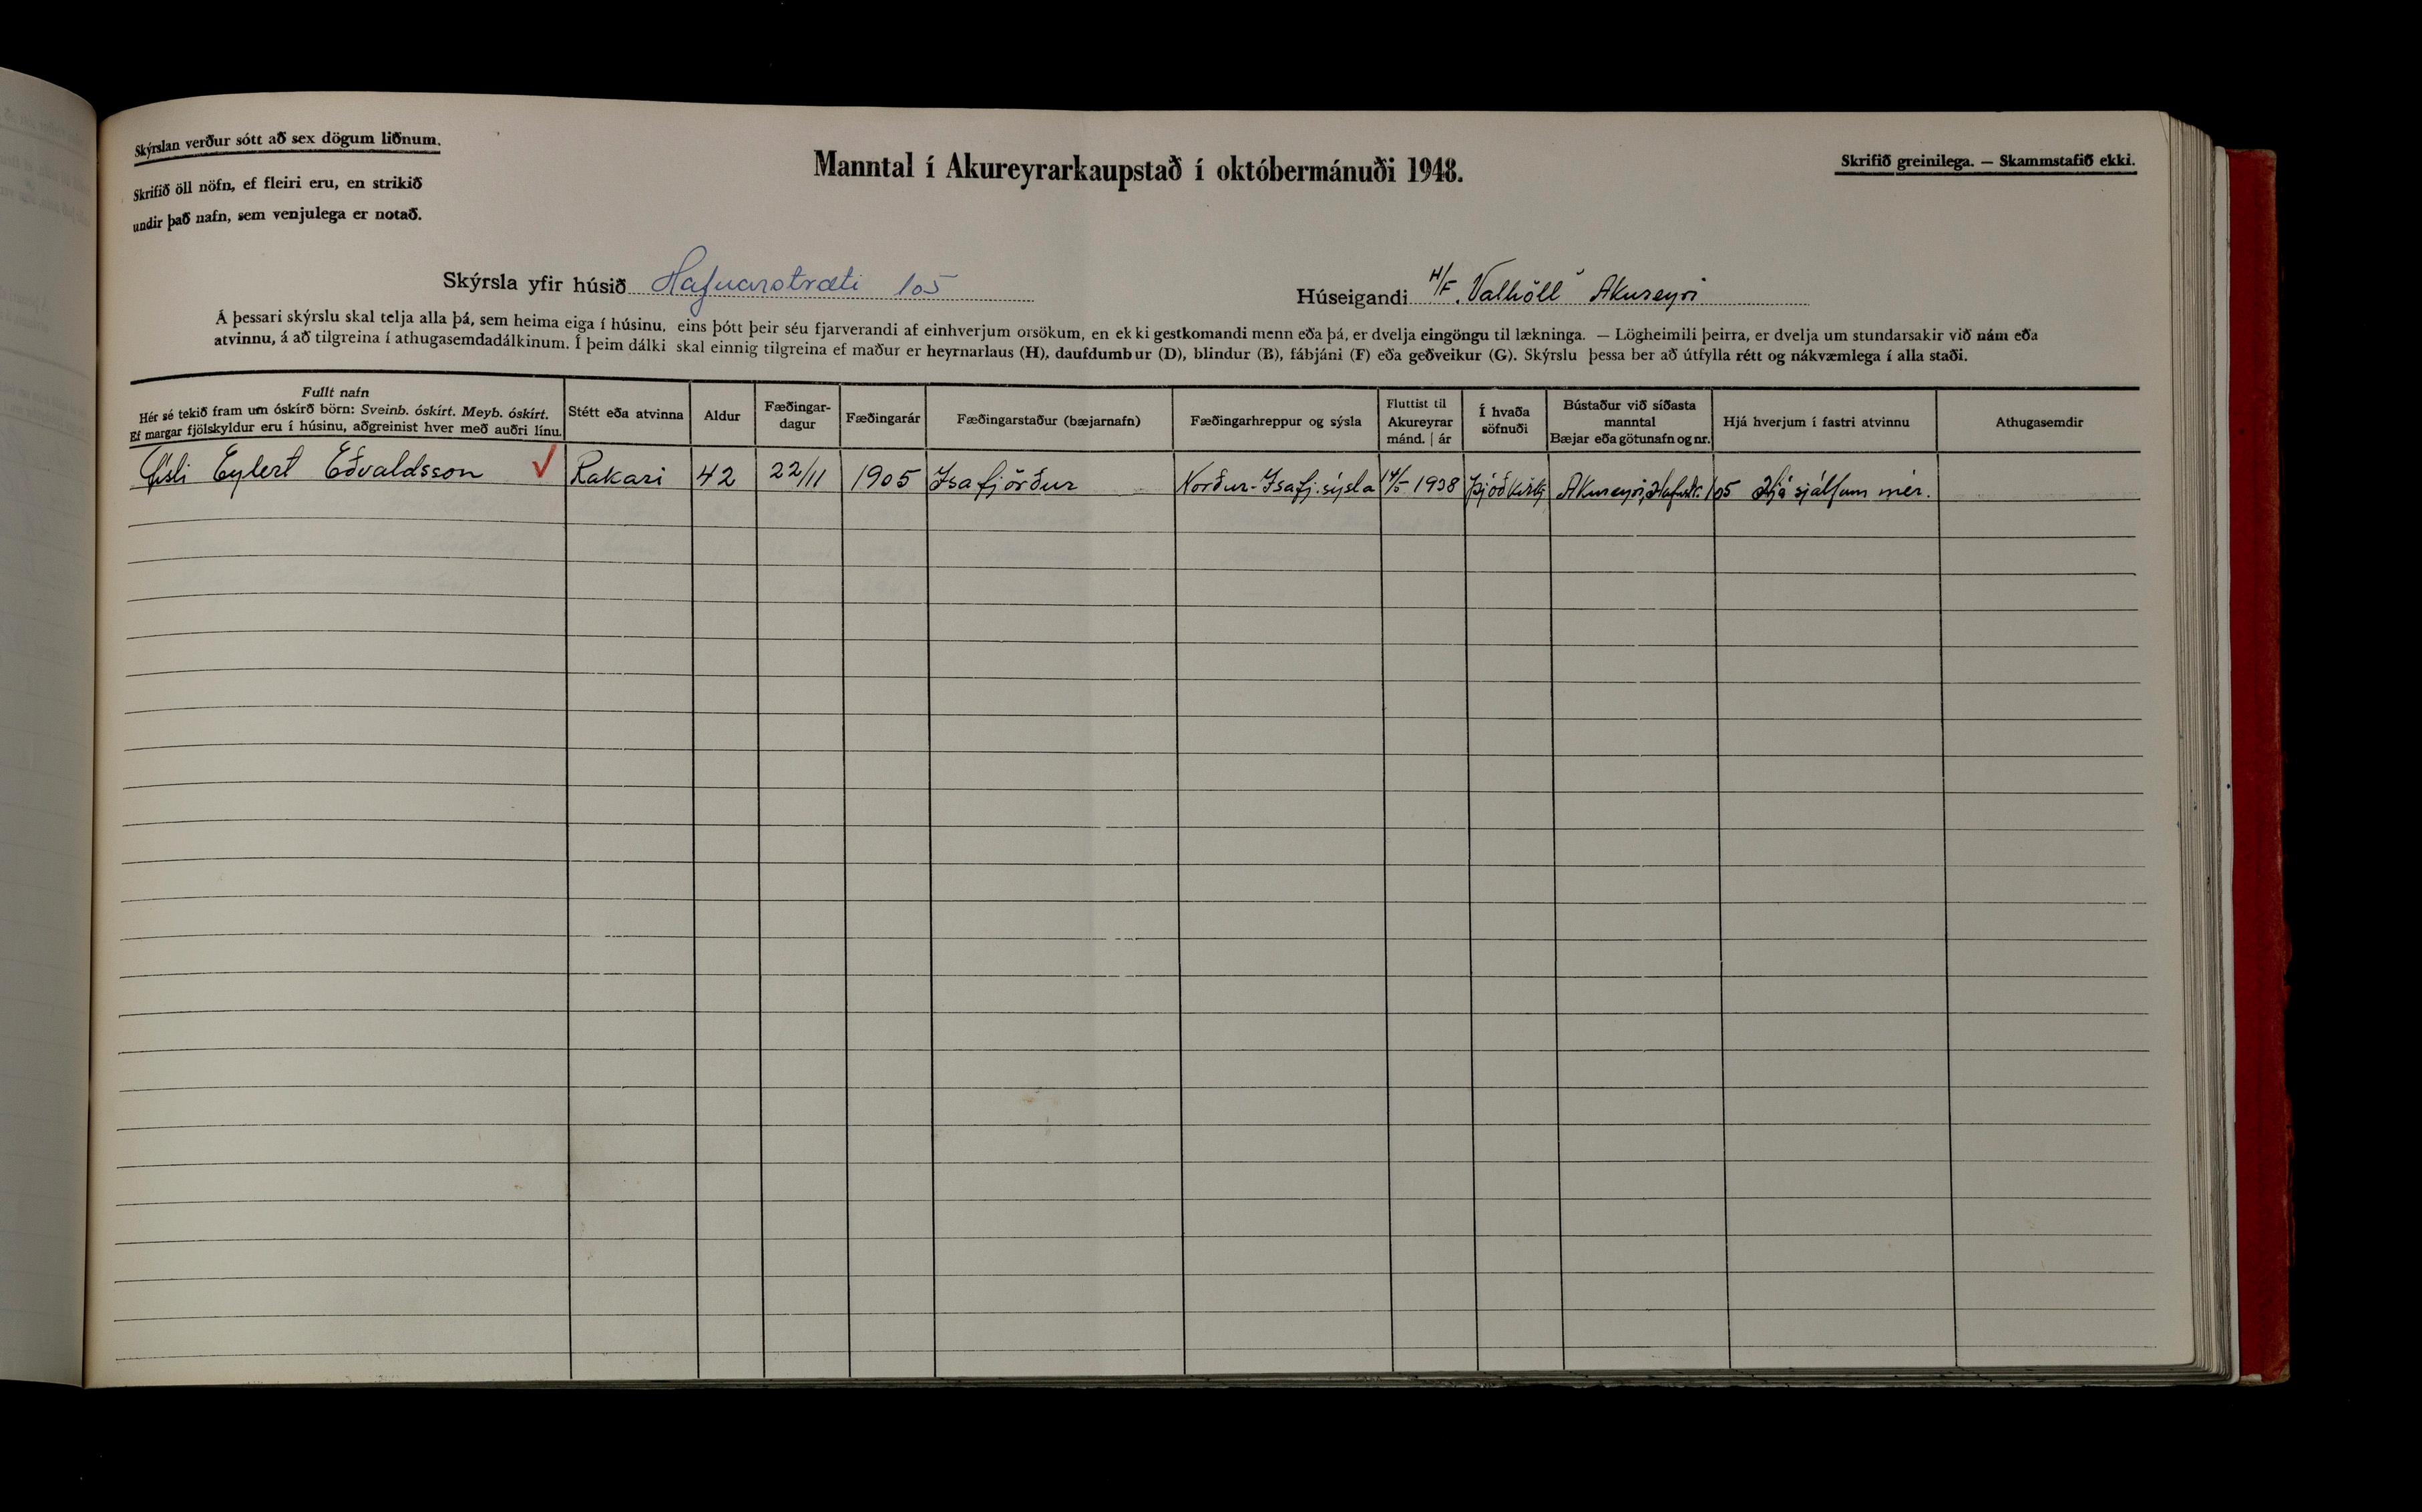 Skýrslan verður sótt að sex dögum liðnum.
Skrifið öll nöfn, ef fleiri eru, en strikið
undir það nafn, sem venjulega er notað.
Manntal í Akureyrarkaupstað í októbermánuði 1948.
Skrifið greinilega. — Skammstafið ekki.
Skýrsla yfir húsið Hafnarstræti 105
Húseigandi H/F. Valhöll Akureyri
Á þessari skýrslu skal telja alla þá, sem heima eiga í húsinu, eins þótt þeir séu fjarverandi af einhverjum orsökum, en ekki gestkomandi menn eða þá, er dvelja eingöngu til lækninga. — Lögheimili þeirra, er dvelja um stundarsakir við nám eða
atvinnu, á að tilgreina í athugasemdadálkinum. Í þeim dálki skal einnig tilgreina ef maður er heyrnarlaus (H), daufdumbur (D), blindur (B), fábjáni (F) eða geðveikur (G). Skýrslu þessa ber að útfylla rétt og nákvæmlega í alla staði.
Fullt nafn
Hér sé tekið fram um óskírð börn: Sveinb. óskírt. Meyb. óskírt.
Ef margar fjölskyldur eru í húsinu, aðgreinist hver með auðri línu.
Stétt eða atvinna
Aldur
Fæðingar-
dagur
Fæðingarár
Fæðingarstaður (bæjarnafn)
Fæðingarhreppur og sýsla
Fluttist til
Akureyrar
mánd. | ár
Í hvaða
söfnuði
Bústaður við síðasta
manntal
Bæjar eða götunafn og nr.
Hjá hverjum í fastri atvinnu
Athugasemdir
Gísli Eylert Eðvaldsson ✓ Rakari 42 22/11 1905 Ísafjörður Norður-Ísafj.sýsla 14/5 1938 Þjóðkirkj Akureyri, Hafnstr. 105 Hjá sjálfum mér.